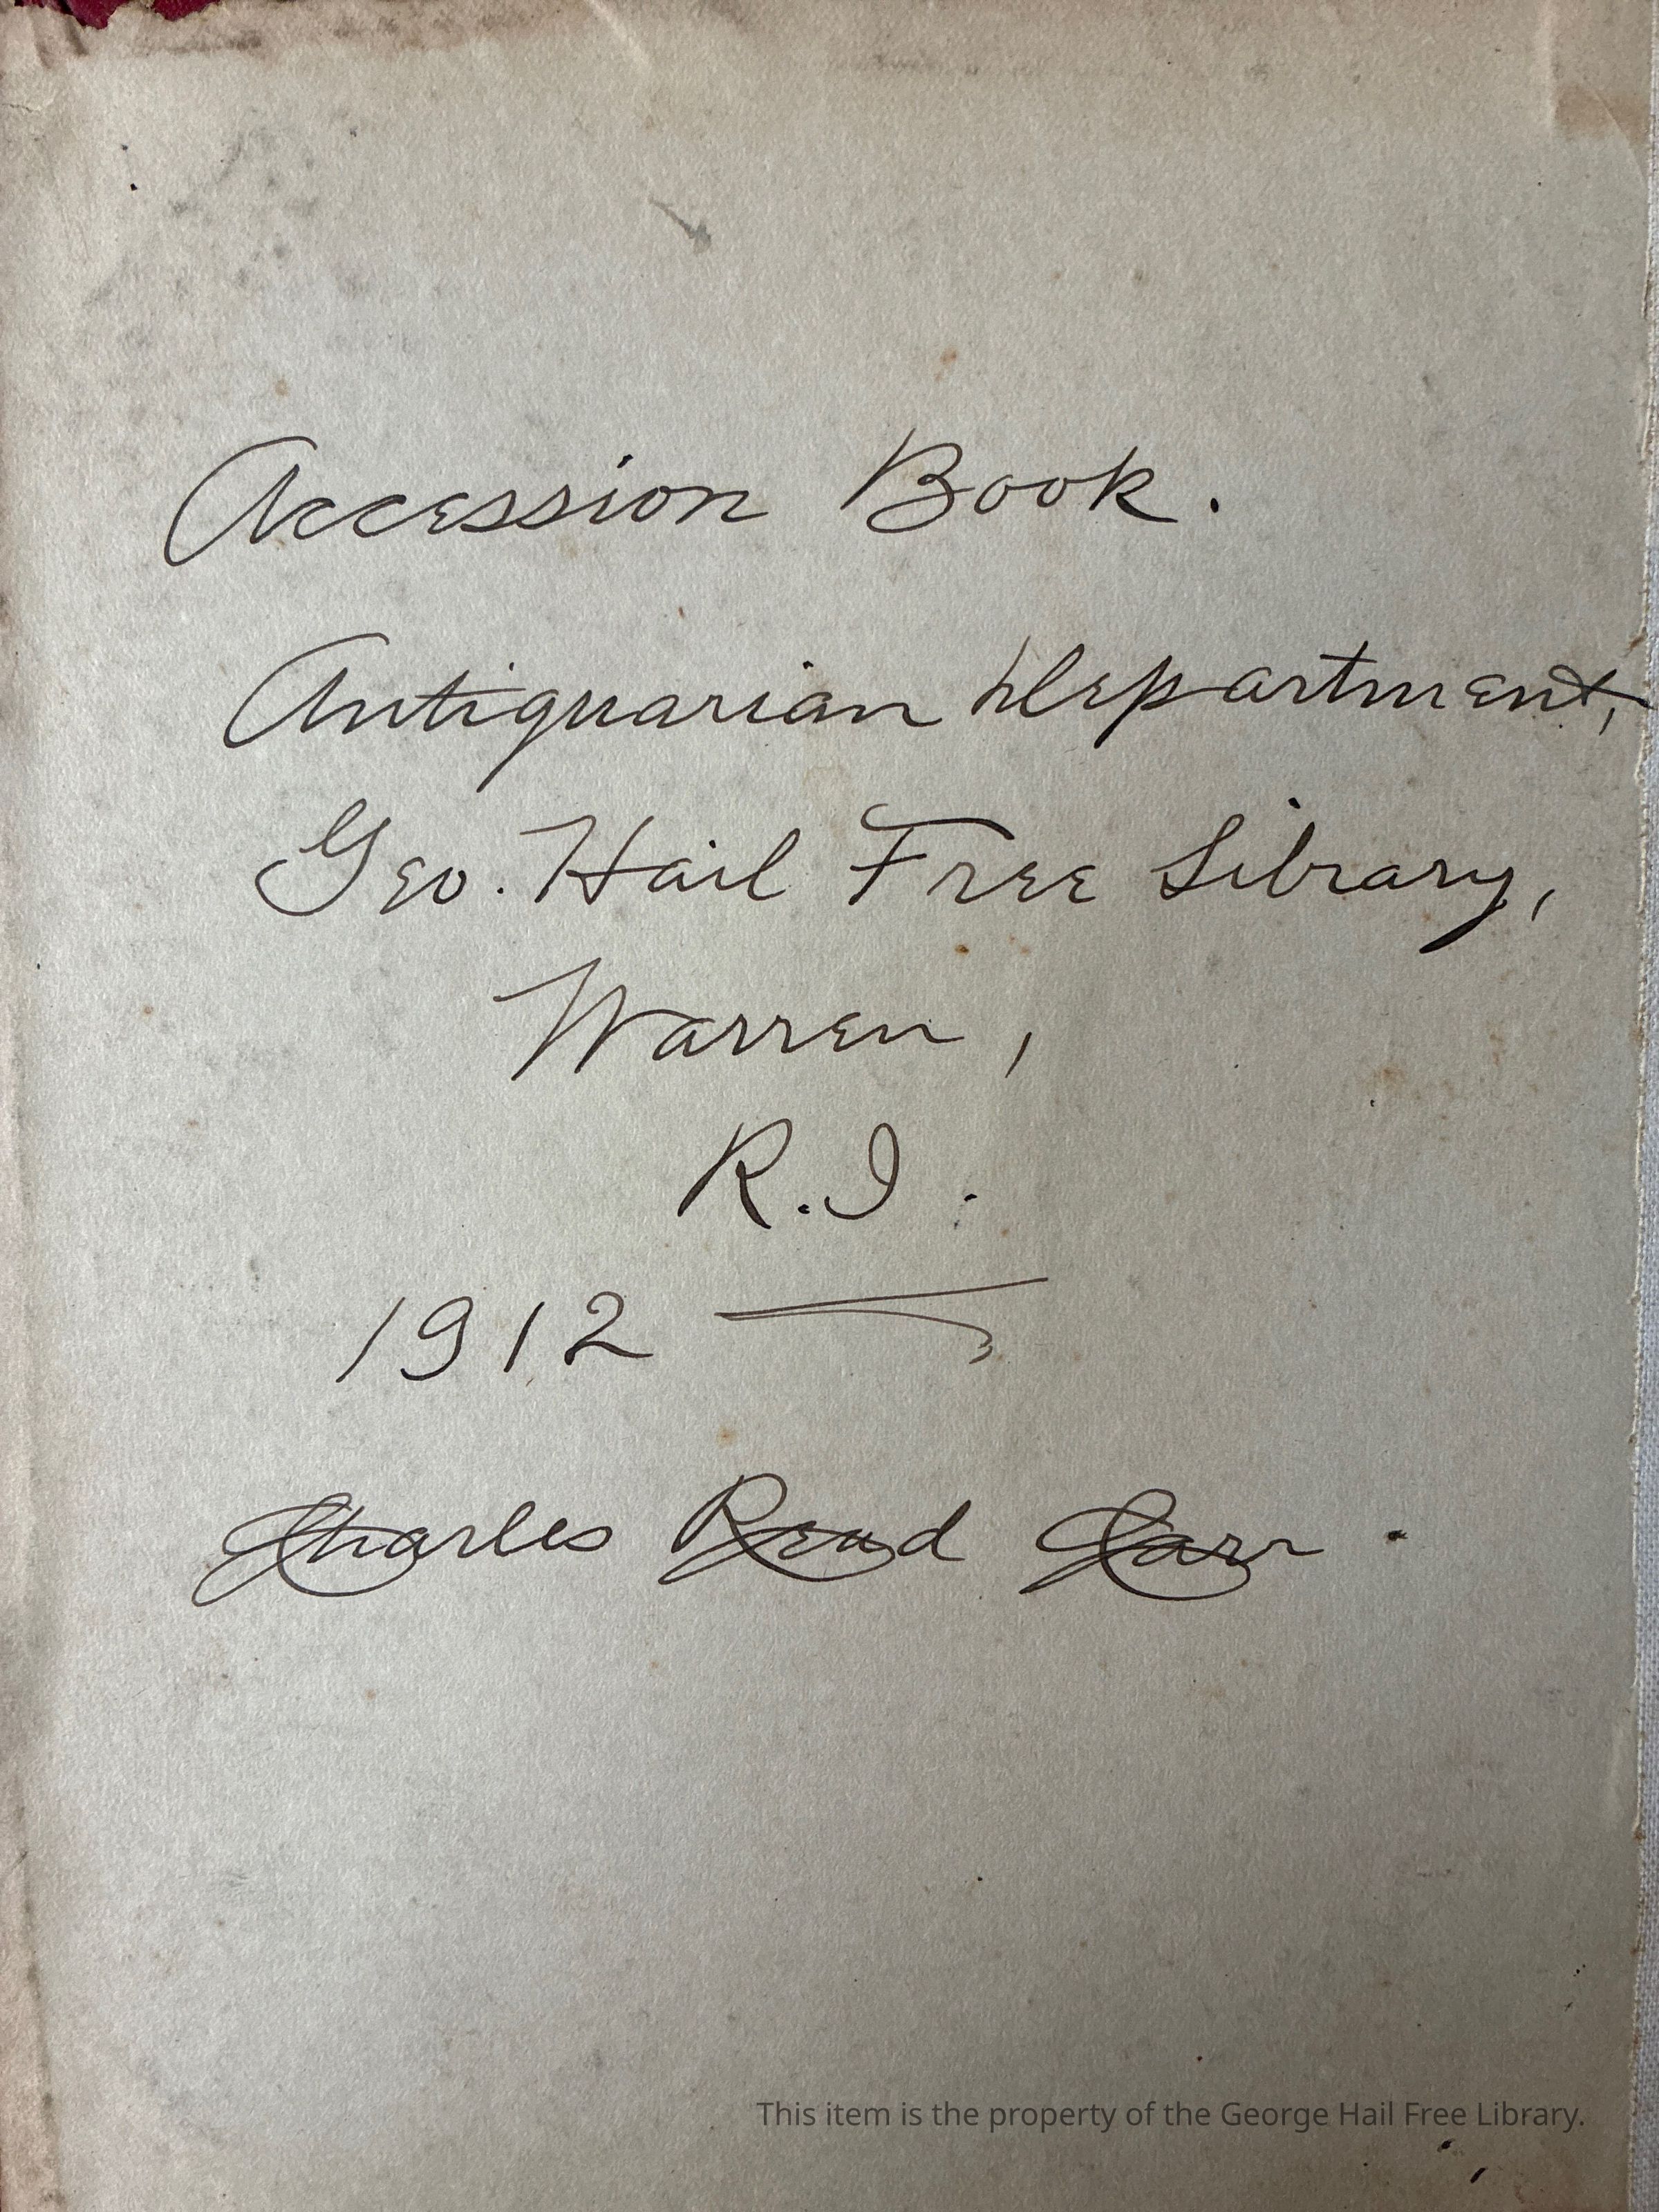 Accession Book.
Antiquarian Department,
Geo. Hail Free Library,
Warren,
R.I.
1912
Charles Read Carr.
This item is the property of the George Hail Free Library.